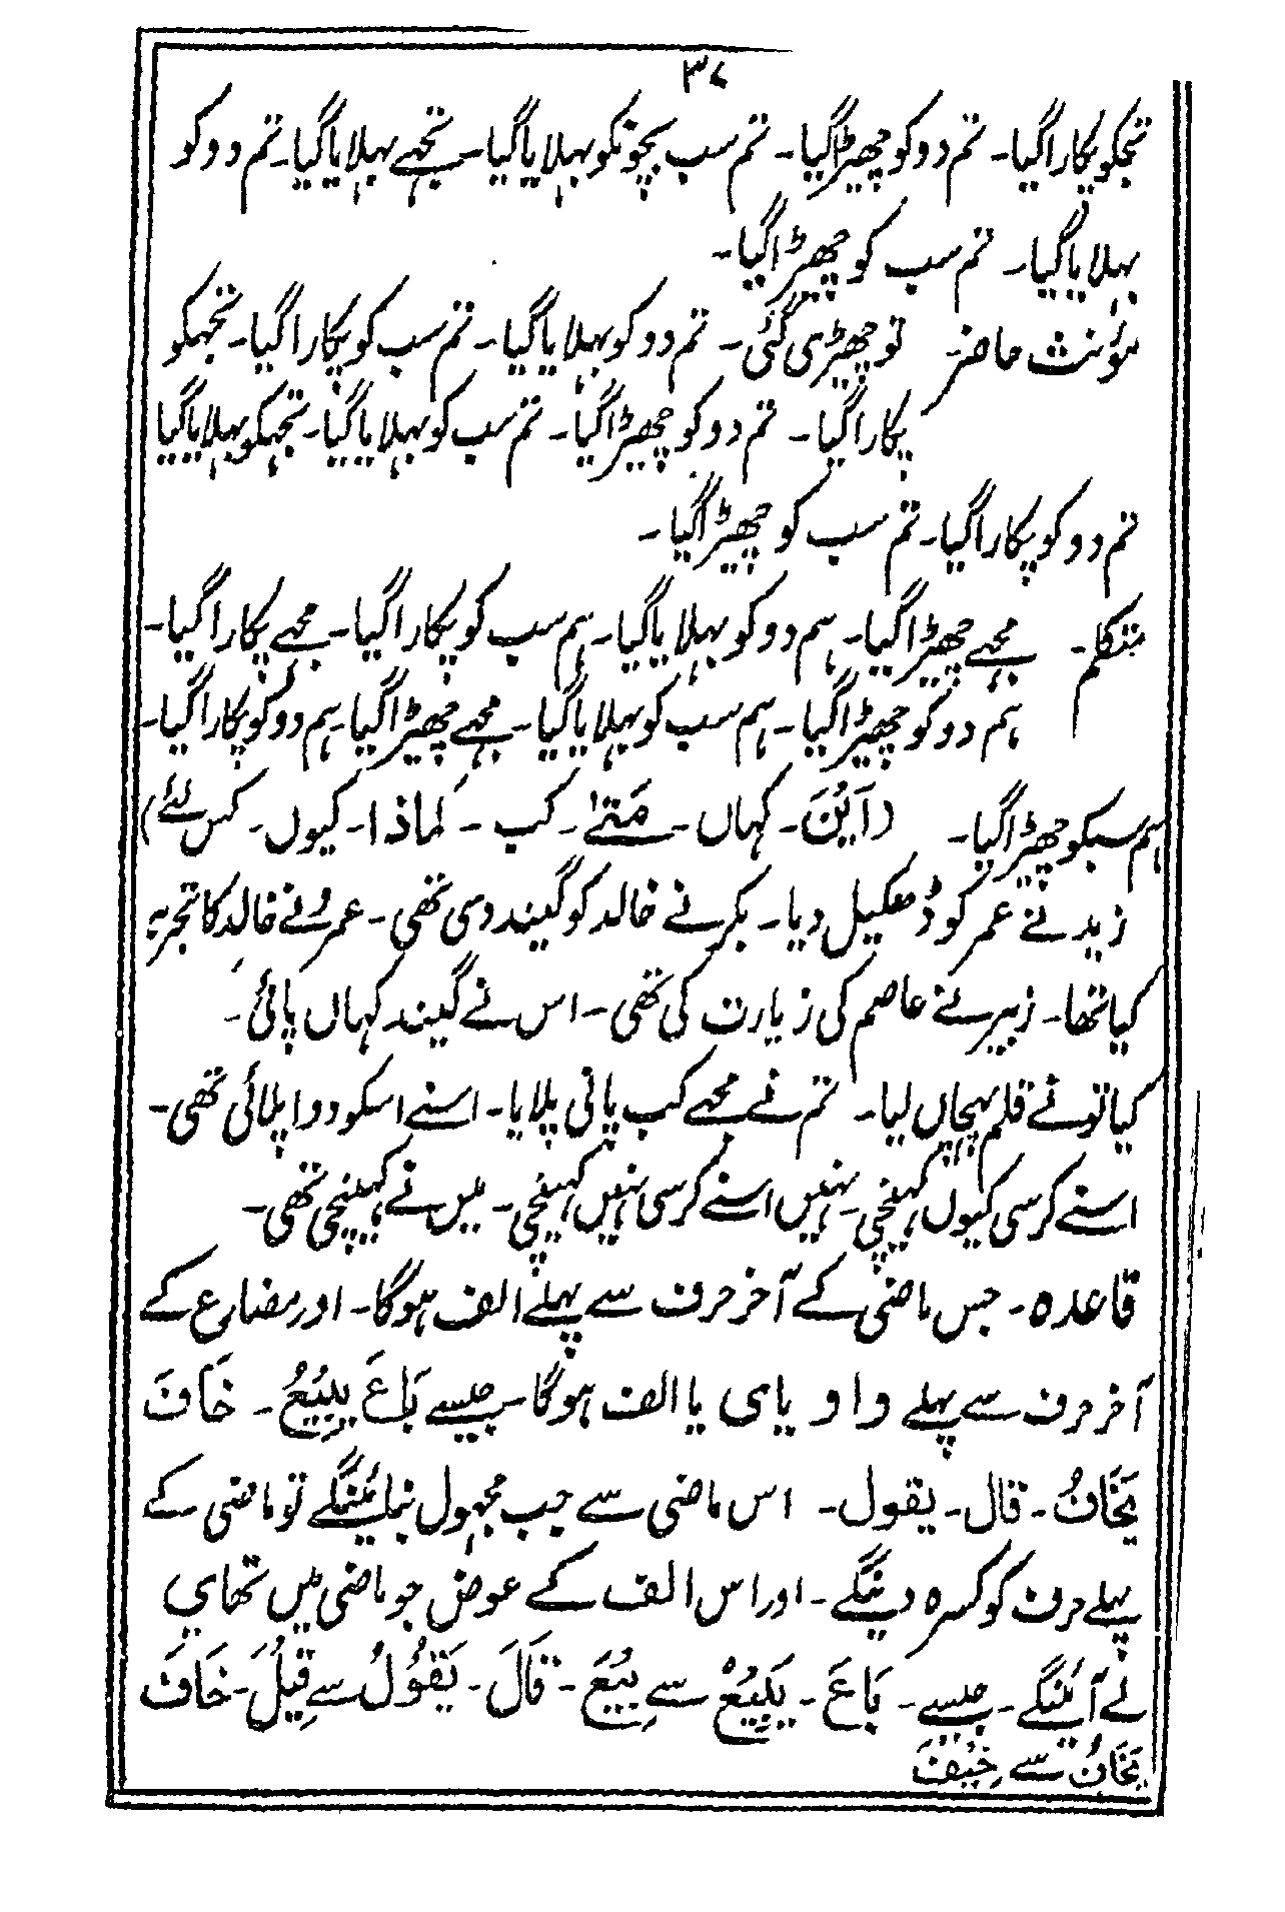 ۳۷
تجکو پکارا گیا۔ تم دو کو چھیڑا گیا۔ تم سب بچونکو بہلایا گیا۔ تجہے بہلایا گیا۔ تم دو کو
بہلایا گیا۔ تم سب کو چھیڑا گیا۔
مؤنث حاضر تو چھیڑی گئی۔ تم دو کو بہلایا گیا۔ تم سب کو پکارا گیا۔ تجہکو
پکارا گیا۔ تم دو کو چھیڑا گیا۔ تم سب کو بہلایا گیا۔ تجہکو بہلایا گیا
تم دو کو پکارا گیا۔ تم سب کو چھیڑا گیا۔
متکلم۔ مجہے چھیڑا گیا۔ ہم دو کو بہلایا گیا۔ ہم سب کو پکارا گیا۔ مجہے پکارا گیا۔
ہم دو کو چھیڑا گیا۔ ہم سب کو بہلایا گیا۔ مجہے چھیڑا گیا۔ ہم دو کو پکارا گیا۔
ہم سبکو چھیڑا گیا۔ (اَیْنَ۔ کہاں۔ مَتےٰ۔ کب۔ لماذا۔ کیوں۔ کس لئے)
زید نے عمر کو ڈھکیل دیا۔ بکر نے خالد کو گیند دی تھی۔ عمرو نے خالد کا تجربہ
کیا تھا۔ زبیر نے عاصم کی زیارت کی تھی۔ اس نے گیند کہاں پائی۔
کیا تو نے قلم پہچاں لیا۔ تم نے مجہے کب پانی پلایا۔ اسنے اسکو دوا پلائی تھی۔
اسنے کرسی کیوں کہینچی۔ نہیں اسنے کرسی نہیں کہینچی۔ میں نے کہینچی تھی۔
قاعدہ۔ جس ماضی کے آخر حرف سے پہلے الف ہوگا۔ اور مضارع کے
آخر حرف سے پہلے واو یا ی یا الف ہوگا۔ جیسے بَاعَ یَبِیْعُ۔ خَافَ
یَخَافُ۔ قال۔ یقول۔ اس ماضی سے جب مجہول بنائینگے تو ماضی کے
پہلے حرف کو کسرہ دینگے۔ اور اس الف کے عوض جو ماضی میں تھا ي
لے آئینگے۔ جیسے۔ بَاعَ۔ یَبِیْعُ سے بِیْعَ۔ قَالَ۔ یَقُوْلُ سے قِیْلَ۔ خَافَ
یَخَافُ سے خِیْفَ